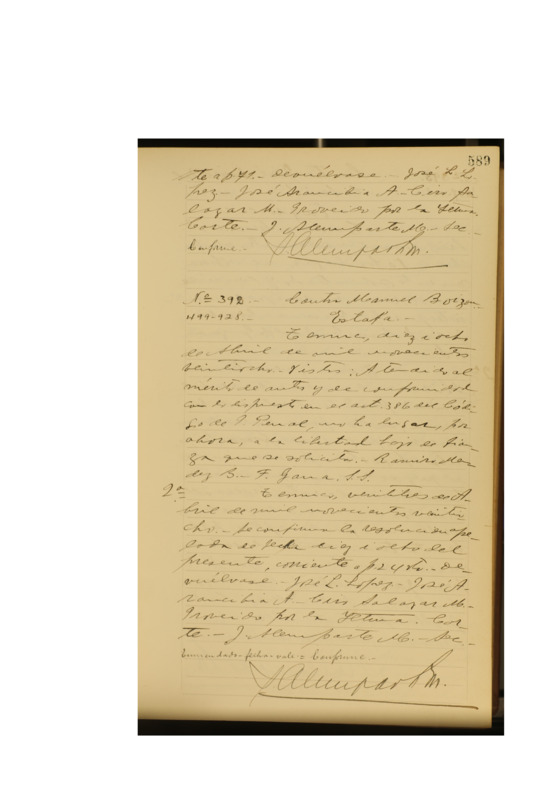 589
te a f 71.- devuélvase.- José L. Ló-
pez.- José Arancibia A.- Ciro Sa-
lazar M.- Proveído por la Iltma.
Corte.- J. Alemparte M.- Sec.-
Conforme.-
J Alemparte M.
N.º 392.- Contra Manuel
499-928.- Estafa.-
Temuco, diez i ocho
de Abril de mil novecientos
veintiocho.- Vistos: Atendido el
mérito de autos y de conformidad
con lo dispuesto en el art. 386 del Códi-
go de P. Penal, no ha lugar, por
ahora, a la libertad bajo de fian-
za que se solicita.- Ramiro Mén-
dez B.- F. S.S.
2.ª Temuco, veintitres de A-
bril de mil novecientos veintio-
cho.- Se confirma la resolucion ape-
lada de fecha diez i ocho del
presente, corriente a f 2 y vta.- De-
vuélvase.- José L. López.- José A-
rancibia A.- Ciro Salazar M.-
Proveído por la Iltma. Cor-
te.- J. Alemparte M.- Sec.-
Enmendado-fecha-vale.= Conforme.-
J Alemparte M.